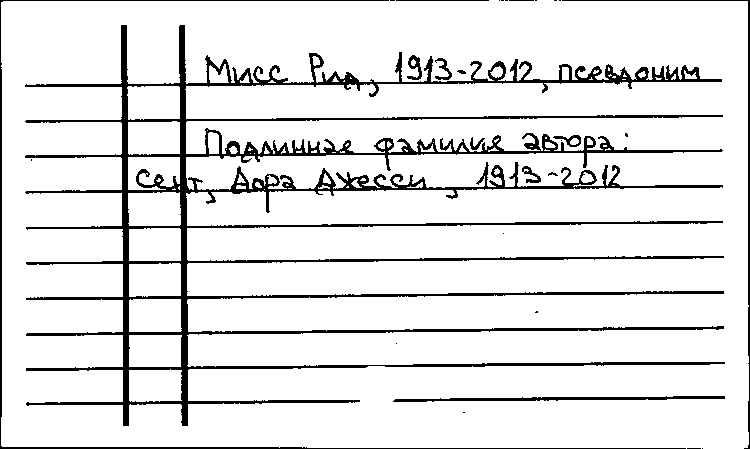 Мисс Рид, 1913-2012, псевдоним
Подлинная фамилия автора:
Сент, Дора Джесси, 1913-2012